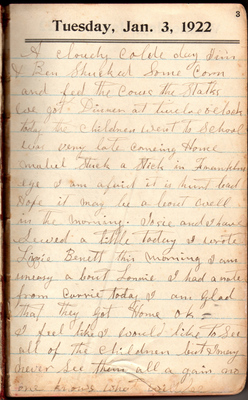 3
Tuesday, Jan. 3, 1922
A cloudy colde day Jim
& Ben Shucked Some Corn
and fed the Cows the Stalks
we got Dinner at twelve o'clock
today the children went to School
was very late comeing Home
Stuck a Stick in
eye I am afraid it is hurt bad
Hope it may be a bout well
in the morning. and I have
Sewed a little today I wrote
Lizzie Benett this morning I am
uneasy a bout Fannie I had a note
from Carrie today I am Glad
that they got Home ok =
I feel like I would like to See
all of the children but I may
never See them all a gain no
one knows what